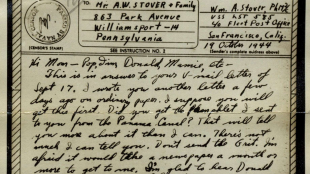 To: Mr. A.W. STOVER & Family
863 Park Avenue
Williamsport-14
Pennsylvania
Wm. A. Stover, PhM
USS LST 585
c/o Fleet Post Office
San Francisco, Calif.
19 October 1944
(Sender's complete address above)
SEE INSTRUCTION NO. 2
Hi Mom - Pop, Jim, Donald, Mamie, etc-
This is in answer to your V-mail letter of
Sept 17. I wrote you another letter a few
days ago on ordinary paper. I suppose you will
get this first. Did you get the Pamphlet I sent
to you from the Panama Canal? That will tell
you more about it than I can. There's not
much I can tell you. Don't send the Grit. I'm
afraid it would take a newspaper a month or
more to get to me. I'm glad to hear Donald